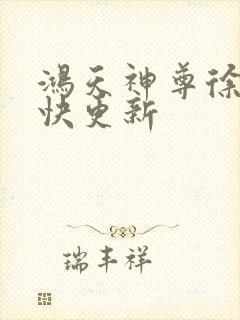 鴻天神尊徐
快更新
瑞丰祥